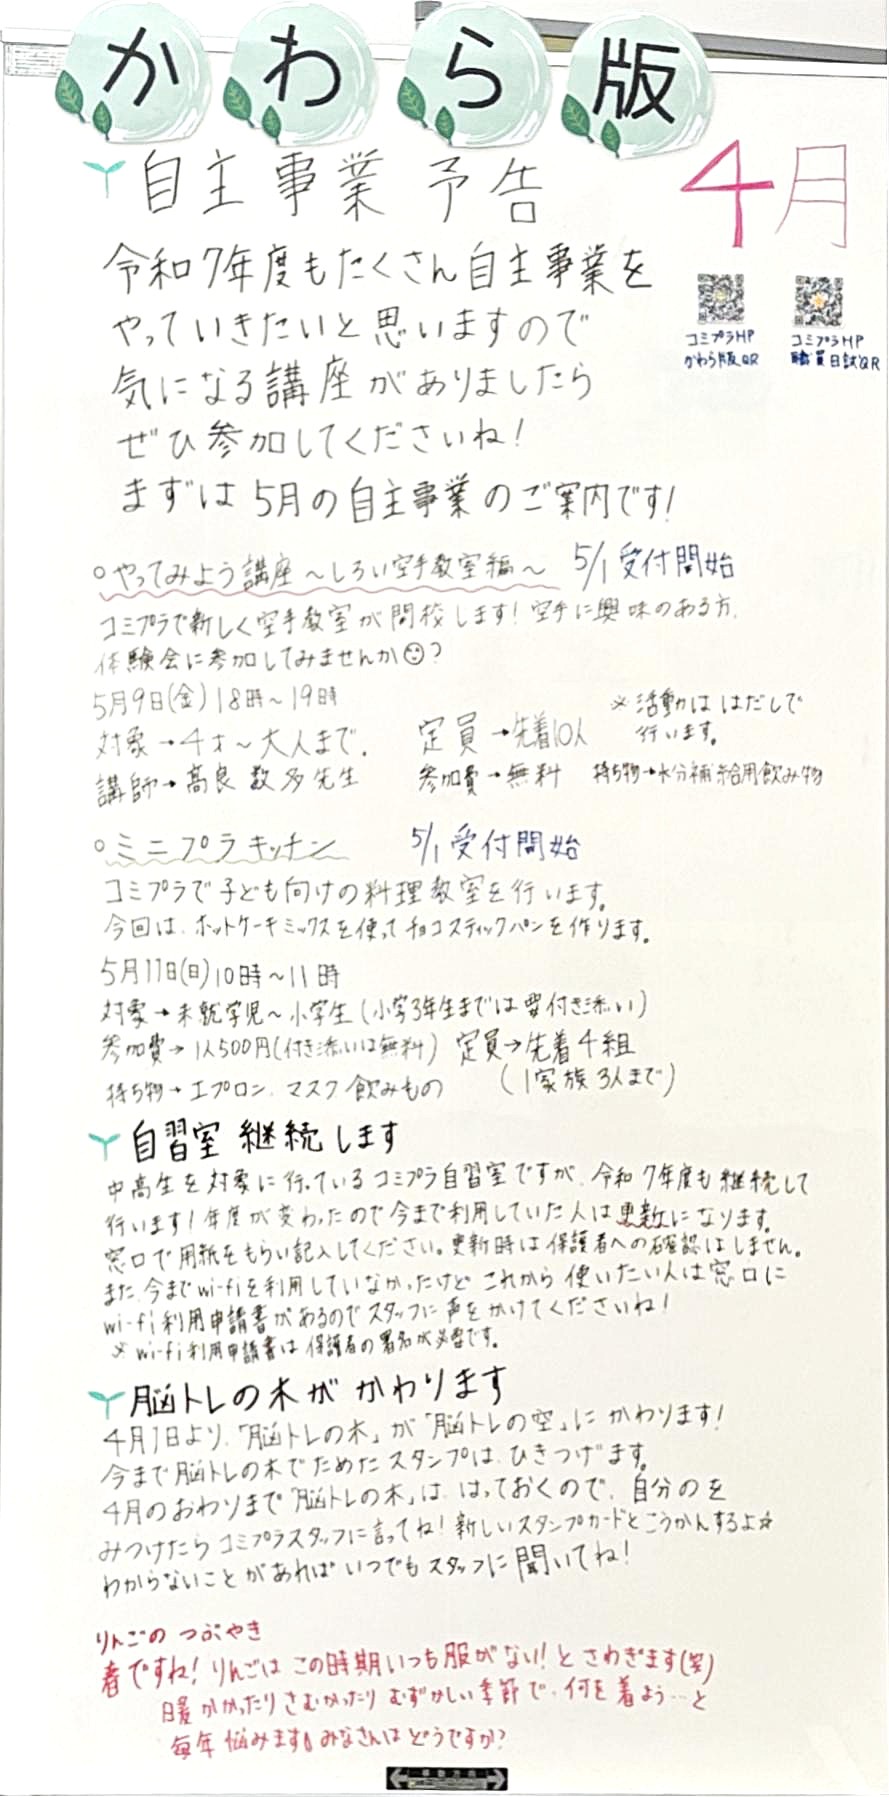 かわら版
自主事業 予告
4月
コミプラHP
かわら版QR
コミプラHP
職員日誌QR
令和7年度もたくさん自主事業を
やっていきたいと思いますので
気になる講座がありましたら
ぜひ参加してくださいね!
まずは5月の自主事業のご案内です!
○やってみよう講座～しろい空手教室編～ 5/1 受付開始
コミプラで新しく空手教室が開校します!空手に興味のある方、
体験会に参加してみませんか☺?
5月9日(金)18時～19時
※活動ははだしで
行います。
対象→4才～大人まで。 定員→先着10人
講師→高良 数多先生 参加費→無料 持ち物→水分補給用飲み物
○ミニプラキッチン 5/1 受付開始
コミプラで子ども向けの料理教室を行います。
今回は、ホットケーキミックスを使ってチョコスティックパンを作ります。
5月11日(日)10時～11時
対象→未就学児～小学生(小学3年生までは要付き添い)
参加費→1人500円(付き添いは無料) 定員→先着4組
持ち物→エプロン、マスク飲みもの (1家族3人まで)
自習室継続します
中高生を対象に行っているコミプラ自習室ですが、令和7年度も継続して
行います!年度が変わったので今まで利用していた人は更新になります。
窓口で用紙をもらい記入してください。更新時は保護者への確認はしません。
また、今までwi-fiを利用していなかったけどこれから使いたい人は窓口に
wi-fi利用申請書があるのでスタッフに声をかけてくださいね!
※wi-fi利用申請書は保護者の署名が必要です。
脳トレの木がかわります
4月1日より、「脳トレの木」が「脳トレの空」にかわります!
今まで脳トレの木でためたスタンプは、ひきつげます。
4月のおわりまで「脳トレの木」は、はっておくので、自分のを
みつけたらコミプラスタッフに言ってね!新しいスタンプカードとこうかんするよ☆
わからないことがあればいつでもスタッフに聞いてね!
りんごのつぶやき
春ですね!りんごはこの時期いつも服がない!とさわぎます(笑)
暖かかったりさむかったりむずかしい季節で、何を着よう…と
毎年悩みます。みなさんはどうですか?